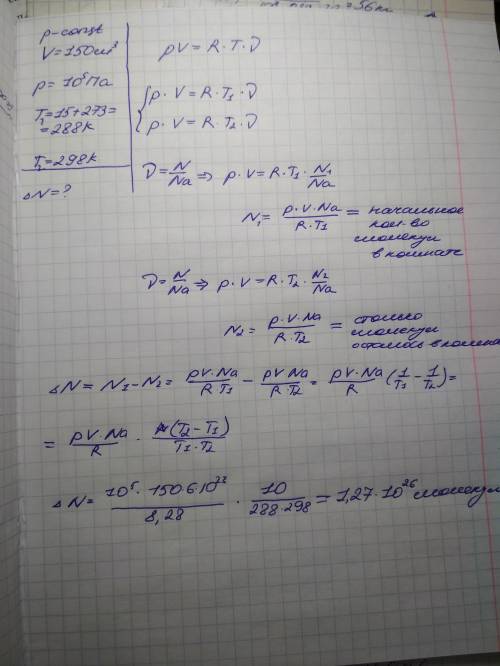 p-const
V=150см³
p=10⁵Па
T₁=15+273=
=288К
T₂=298К
ΔN=?
pV=R·T·D
p·V=R·T₁·D
p·V=R·T₂·D
D=N/Na ⇒ p·V=R·T₁·N₁/Na
N₁=p·V·Na/R·T₁= начальное
кол-во
молекул
в комнате
D=N/Na ⇒ p·V=R·T₂·N₂/Na
N₂=p·V·Na/R·T₂= столько
молекул
осталось в комна
ΔN=N₁-N₂=pV·Na/R T₁-pV Na/R T₂=pV·Na/R(1/T₁-1/T₂)=
=pV·Na/R·(T₂-T₁)/T₁·T₂
ΔN=10⁵·150·6·10²²/8,28·10/288·298=1,27·10²⁶ молекул